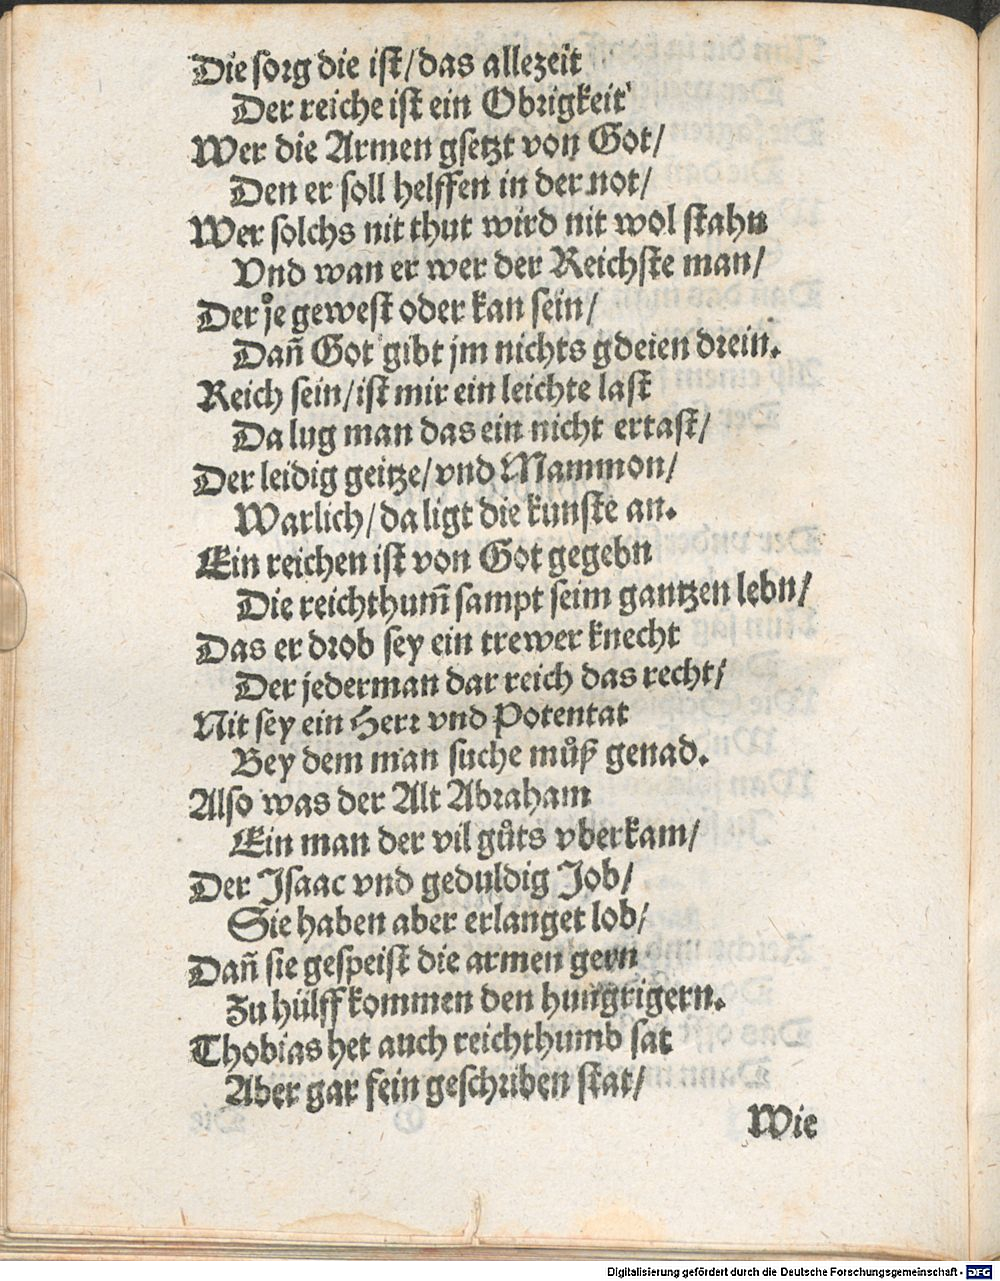 Die sorg die ist/das allezeit
Der reiche ist ein Obrigkeit
Wer die Armen gsetzt von Got/
Den er soll helffen in der not/
Wer solchs nit thut wird nit wol stahn
Vnd wan er wer der Reichste man/
Der je gewest oder kan sein/
Dañ Got gibt jm nichts gdeien drein.
Reich sein/ist mir ein leichte last
Da lug man das ein nicht ertast/
Der leidig geitze/vnd Mammon/
Warlich/da ligt die kunste an.
Ein reichen ist von Got gegebn
Die reichthum̃ sampt seim gantzen lebn/
Das er drob sey ein trewer knecht
Der jederman dar reich das recht/
Nit sey ein Herr vnd Potentat
Bey dem man suche můß genad.
Also was der Alt Abraham
Ein man der vil gůts vberkam/
Der Jsaac vnd geduldig Job/
Sie haben aber erlanget lob/
Dañ sie gespeist die armen gern
Zu hülff kommen den hungrigern.
Thobias het auch reichthumb sat
Aber gar fein geschriben stat/
Wie
Digitalisierung gefördert durch die Deutsche Forschungsgemeinschaft - DFG